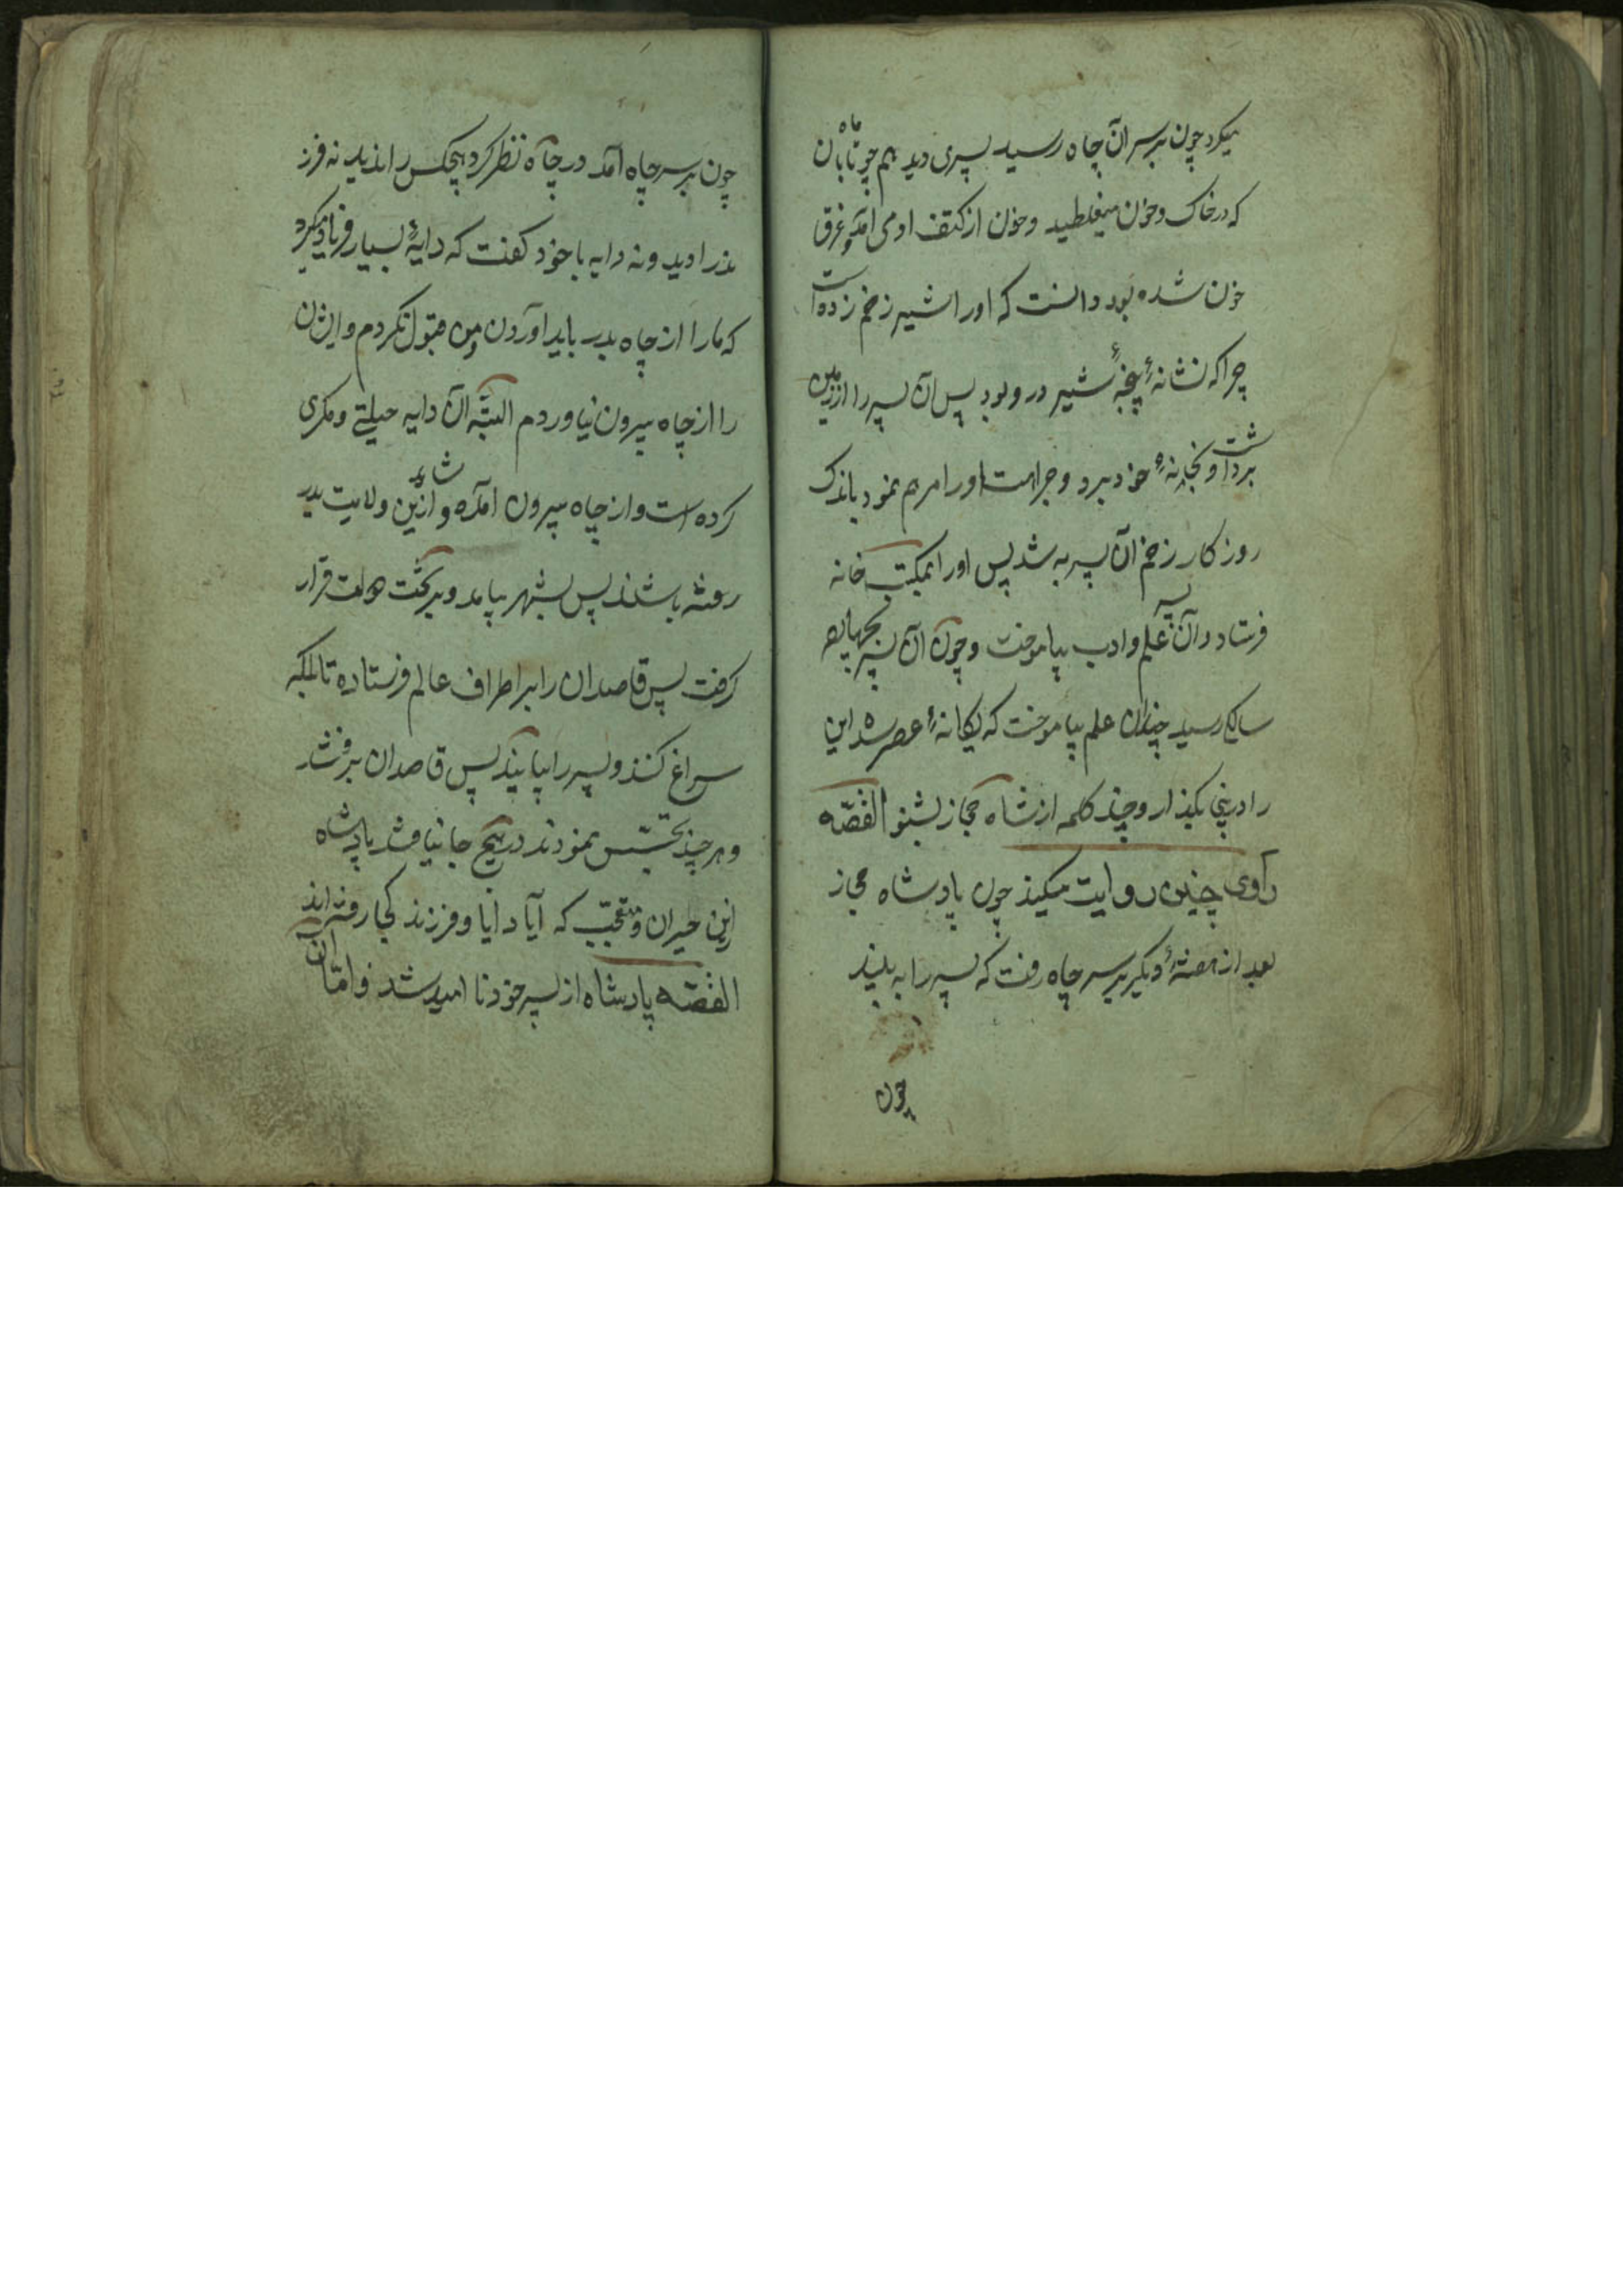 میکرد چون بر سر آن چاه رسید پسری دید هم چو ماه تابان
که در خاک و خون میغلطید و خون از کتف او می آمد و غرق
خون شده بود دانست که او را شیر زخم زده است
چرا که نشانهٔ پنجهٔ شیر در و بود پس آن پسر را از زمین
برداشت و بخانهٔ خود برد و جراحت او را مرهم نمود باندک
روزکار زخم آن پسر به شد پس او را بمکتب خانه
فرستاد و آن پسر علم و ادب بیاموخت و چون آن پسر بچهارده
سالکی رسید چندان علم بیاموخت که یکانهٔ عصر شد این
را در اینجا بکذار و چند کلمه از شاه حجاز بشنو القصّه
راوی چنین روایت میکند چون پادشاه حجاز
بعد از هفتهٔ دیکر بر سر چاه رفت که پسر را به بیند
چون
چون بر سر چاه آمد در چاه نظر کرد هیچکس را ندید نه فرز
ند را دید و نه دایه با خود کفت که دایهٔ بسیار فریاد میکرد
که ما را از چاه بدر باید اوردن و من قبول نکردم و ایشان
را از چاه بیرون نیاوردم البتّه آن دایه حیلتی و مکری
کرده است و از چاه بیرون آمده و شاید ازین ولایت بدر
رفته باشند پس بشهر بیامد و بر تخت دولت قرار
کرفت پس قاصدان را بر اطراف عالم فرستاده تا بلکه
سراغ کنند و پسر را بیابند پس قاصدان برفتند
و هر چند تجسّس نمودند در هیچ جا نیافتند پادشاه
ازین حیران و متعجّب که آیا دایا و فرزند کجا رفته اند
القصّه پادشاه از پسر خود نا امید شد و امّا آن